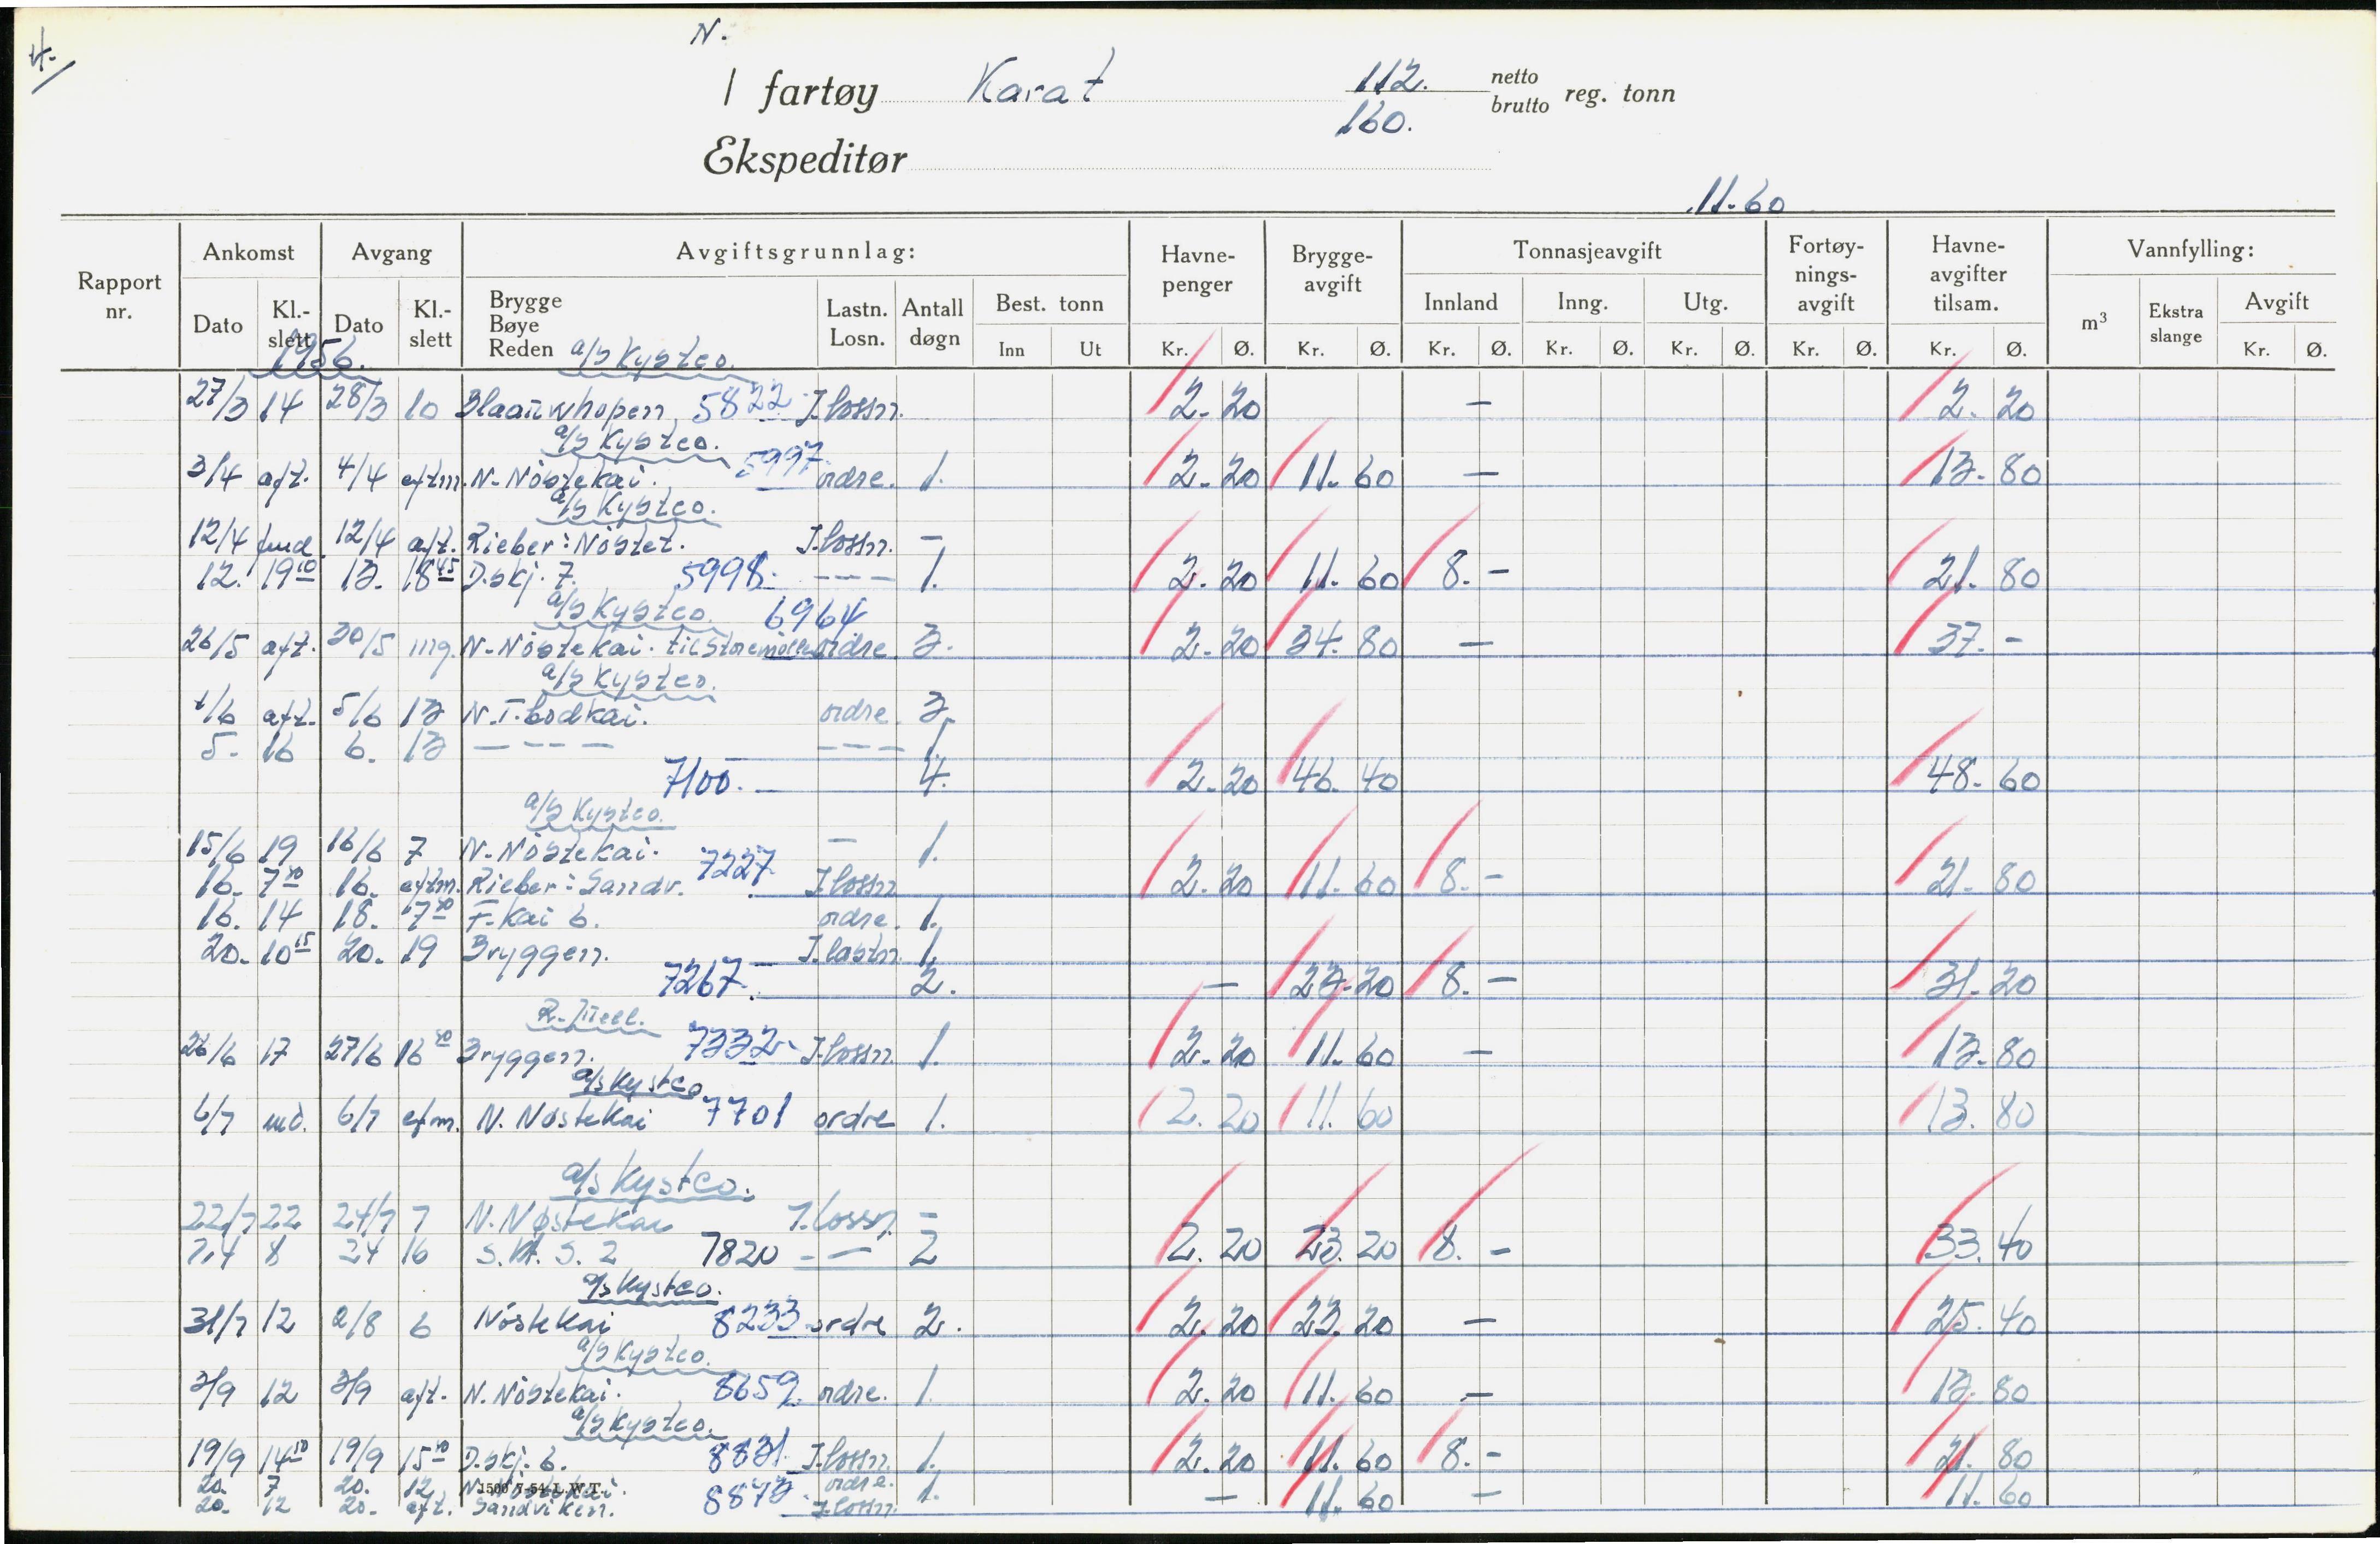 4.
N.
I fartøy Karat 112. netto
160. brutto reg. tonn
Ekspeditør
11.60
Rapport nr. Ankomst Avgang Avgiftsgrunnlag: Havne-penger Brygge-avgift Tonnasjeavgift Fortøy-nings-avgift Havne-avgifter tilsam. Vannfylling:
Dato Kl.-slett Dato Kl.-slett Brygge Bøye Reden Lastn. Losn. Antall døgn Best. tonn Innland Inng. Utg. m³ Ekstra slange Avgift
Inn Ut Kr. Ø. Kr. Ø. Kr. Ø. Kr. Ø. Kr. Ø. Kr. Ø. Kr. Ø. Kr. Ø.
1956. a/s Kystco.
27/3 14 28/3 10 Blaauwhopen 5822 I.lossn. 2. 20 – 2. 20
a/s Kystco.
3/4 aft. 4/4 eftm. N. Nöstekai. 5997 ordre. 1. 2. 20 11. 60 – 13. 80
a/s Kystco.
12/4 fmd. 12/4 aft. Rieber: Nöstet. I.lossn. –
12. 19 10 13. 18 45 D.skj. 7. 5998. – – – 1. 2. 20 11. 60 8. – 21. 80
a/s Kystco. 6964
26/5 aft. 30/5 mg. N. Nöstekai. til Storemöllen ordre 3. 2. 20 34. 80 – 37. –
a/s Kystco.
1/6 aft. 5/6 13 N.T.bodkai. ordre. 3
5. 16 6. 13 – – – – – – – 1
7100. 4. 2. 20 46. 40 48. 60
a/s Kystco.
15/6 19 16/6 7 N. Nöstekai. – 1.
16. 7 30 16. eftm. Rieber: Sandv. 7227 I.lossn 2. 20 11. 60 8. – 21. 80
16. 14 18. 7 30 F. kai 6. ordre. 1.
20. 10 15 20. 19 Bryggen. I.lastn. 1.
7267. 2. – 23. 20 8. – 31. 20
26/6 17 27/6 16 Bryggen. 7332 I.lossn 1. 2. 20 11. 60 – 13. 80
a/s Kystco
6/7 md. 6/7 efm. N. Nøstekai 7701 ordre 1. 2. 20 11. 60 13. 80
a/s Kystco.
22/7 22 24/7 7 N. Nøstekai I.lossn –
24 8 24 16 S.K. S. 2 7820 – – 2 2. 20 23. 20 8. – 33. 40
a/s Kystco.
31/7 12 2/8 6 Nöstekai 8233 ordre 2. 2. 20 23. 20 – 25. 40
a/s Kystco.
3/9 12 3/9 aft. N. Nöstekai. 8659 ordre. 1. 2. 20 11. 60 – 13. 80
a/s Kystco.
19/9 14 19/9 15 D.skj. 6. 8831 I.lossn. 1. 2. 20 11. 60 8. – 21. 80
20. 7 20. 12 N. Nöstekai. ordre. 1500 7-54 L.W.T.
20. 12 20. aft. Sandviken. 8873 I.lossn 1. – 11. 60 – 11. 60